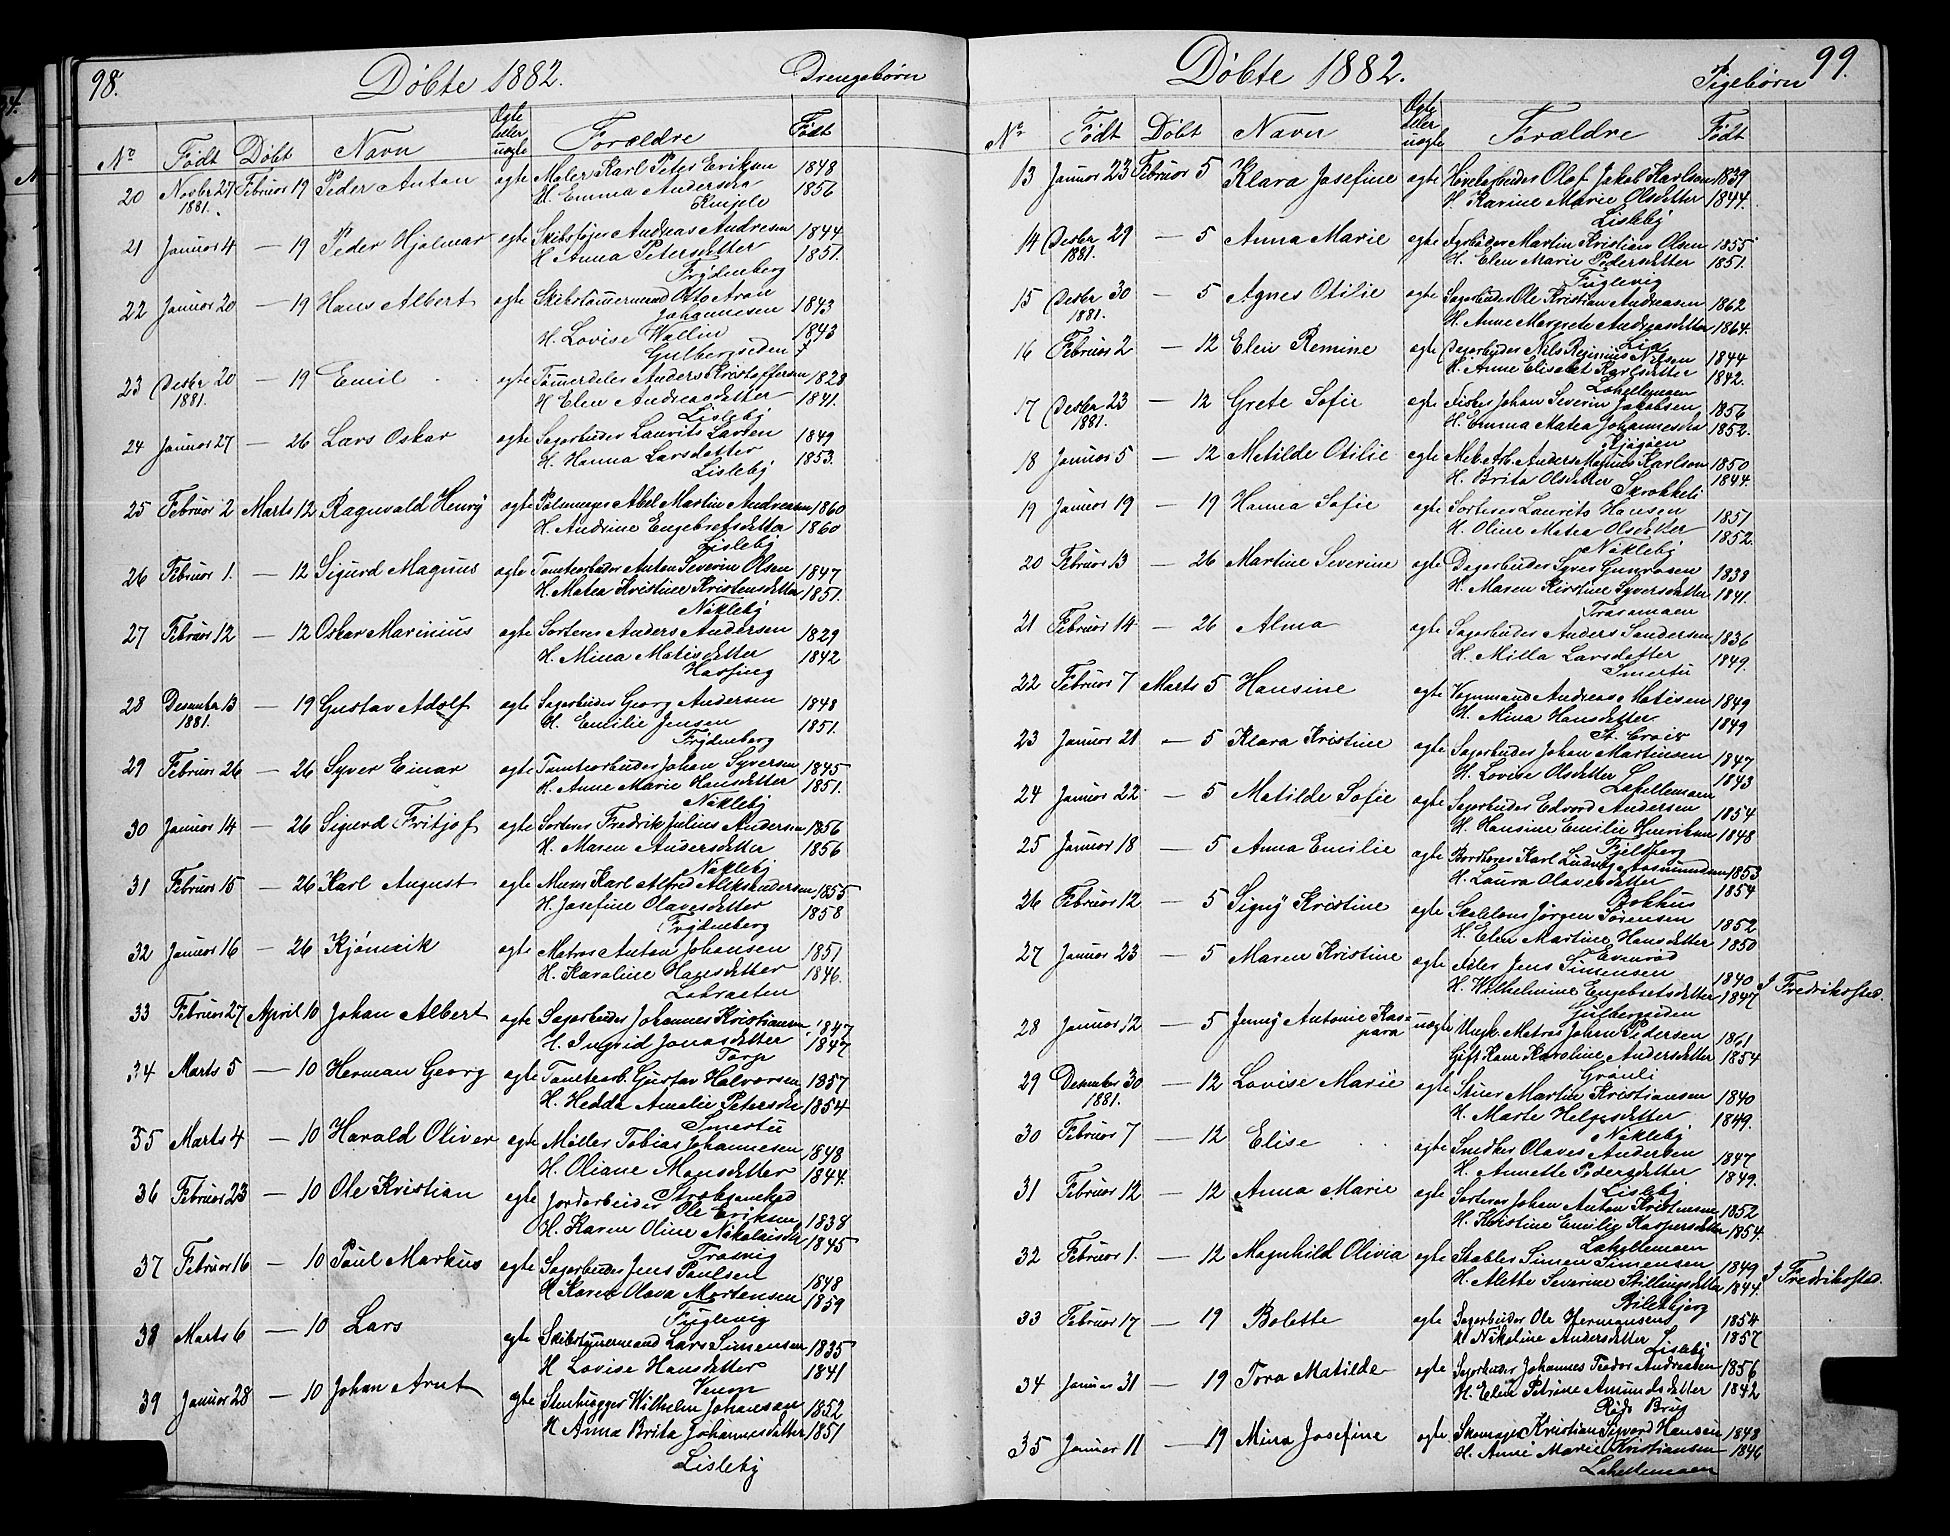 98.
Döbte 1882.
Drengebørn
Nº Født Döbt Navn Ægte eller uægte Forældre Født
20 Novbr 27 Februar 19 Peder Anton egte Maler Karl Peter Eriksen 1848
1881. H. Emma Andersdtr 1856
21 Januar 4 — 19 Peder Hjalmar egte Andreas Andresen 1844
H. Anna Petersdetter 1851.
Frydenberg
22 Januar 20 — 19 Hans Albert egte Skibstømermand Otto Aron
Johannesen 1843
H. Lovise Wallin 1843
Gulbergsiden
23 Desbr 20 — 19 Emil egte Tømerdeler Anders Kristoffersen 1828
1881. H Elen Andreasdetter 1841.
Lisleby
24 Januar 27 — 26 Lars Oskar egte Sagarbeider Laurits Larsen 1849
H. Hanna Larsdetter 1853.
Lisleby
25 Februar 2 Marts 12 Ragnvald Henry egte Abel Martin Andreasen 1860
H. Andrine Engebretsdetter 1860
Lisleby
26 Februar 1. — 12 Sigurd Magnus egte Tomtearbeider Anton Severin Olsen 1847
H. Matea Kristine Kristensdetter 1851.
Nøkleby
27 Februar 12 — 12 Oskar Marinius egte Sorterer Anders Andersen 1829
H. Mina Matisdetter 1842
28 Desember 13 — 19 Gustav Adolf egte Sagarbeider Georg Andersen 1848
1881. H. Emilie Jensen 1851.
Frydenberg
29 Februar 26 — 26 Syver Einar egte Tomtearbeider Johan Syversen 1845
H. Anne Marie Hansdetter 1851.
Nøkleby
30 Januar 14 — 26 Sigurd Fritjof egte Sorterer Fredrik Julius Andersen 1856
H. Maren Andersdetter 1856
Nøkleby
31 Februar 15 — 26 Karl August egte Murer Karl Alfred Aleksandersen 1855
H. Josefine Olavesdetter 1858
Frydenberg
32 Januar 16 — 26 Kjønnik egte Matros Anton Johansen 1851
H. Karoline Hansdetter 1846.
33 Februar 27 April 10 Johan Albert egte Sagarbeider Johannes Kristiansen 1847
H. Ingrid Jonasdetter 1847
Torp
34 Marts 5 — 10 Herman Georg egte Tomtearb. Gustav Halvorsen 1857
H. Hedda Amalie Petersdtr 1854
Smertu
35 Marts 4 — 10 Harald Oliver egte Møller Tobias Johannesen 1848
H. Oliane Monsdetter 1844.
36 Februar 23 — 10 Ole Kristian egte Jordarbeider Ole Eriksen 1838
H. Karen Oline Nikolaisdtr 1845
Trosvig
37 Februar 16 — 10 Paul Markus egte Sagarbeider Jens Paulsen 1848
H Karen Olava Mortensen 1859
Fuglevig
38 Marts 6 — 10 Lars egte Skibstømermand Lars Simensen 1835
H Lovise Hansdetter 1841
39 Januar 28 — 10 Johan Arnt egte Stenhugger Wilhelm Johansen 1852
H Anna Brita Johannesdetter 1851
Lisleby
Döbte 1882.
Pigebørn
99.
Nº Født Döbt Navn Ægte eller uægte Forældre Født
13 Januar 23 Februar 5 Klara Josefine egte Høvelarbeider Olof Jakob Karlson 1839
H. Karine Marie Olsdetter 1844.
Lisleby
14 Desbr 29 — 5 Anna Marie egte Martin Kristian Olsen 1855
1881. H. Elen Marie Pedersdetter 1851.
Fuglevig
15 Desbr 30 — 5 Agnes Otilie egte Sagarbeider Ole Kristian Andreasen 1862
1881. H. Anne Margrete Andreasdetter 1864.
Lia
16 Februar 2 — 12 Elen Remine egte Dagarbeider Nils Reminius Nilsen 1844
H. Anne Elisabet Karlsdetter 1842.
Lahellemoen
17 Desbr 23 — 12 Grete Sofie egte Fisker Johan Severin Jakobsen 1856
1881. H. Emma Matea Johannesdtr 1852.
Kjøgøen
18 Januar 5 — 12 Matilde Otilie egte Mek. Arb. Anders Magnus Karlson 1850
H. Brita Olsdetter 1844.
19 Januar 19 — 19 Hanna Sofie egte Sorterer Laurits Hansen 1851
H. Oline Matea Olsdetter 1852.
Nøkleby
20 Februar 13 — 26 Martine Severine egte Dagarbeider Syver Gunrosen 1838
H. Maren Kirstine Syversdetter 1841.
Trosemoen
21 Februar 14 — 26 Alma egte Sagarbeider Anders Sandersen 1836
H. Milla Larsdetter 1849.
Smertu
22 Februar 7 Marts 5 Hansine egte Vognmand Andreas Matisen 1849
H. Mina Hansdetter 1849
St. Croix
23 Januar 21 — 5 Klara Kristine egte Sagarbeider Johan Martinsen 1847
H. Lovise Olsdetter 1843
Lahellemoen
24 Januar 22 — 5 Matilde Sofie egte Sagarbeider Edvard Andersen 1854
H. Hansine Emilie Henriksen 1848
Fjeldberg
25 Januar 18 — 5 Anna Emilie egte Karl Ludvig Aasmundsen 1853
H. Laura Olavesdetter 1854
Bakhus
26 Februar 12 — 5 Signy Kristine egte Jørgen Sørensen 1852
H. Elen Martine Hansdetter 1850
Evenrød
27 Januar 23 — 5 Maren Kristine egte Jens Simensen 1840 I Fredrikssted.
H. Wilhelmine Engebretsdetter 1847
Gulbergsiden
28 Januar 12 — 5 Jenny Antonie Kas- uægte Ungk. Matros Johan Pedersen 1861
para Gift Kone Karoline Andersdetter 1854
Grønli
29 Desember 30 — 12 Lovise Marie egte Stuer Martin Kristiansen 1840
1881. H. Marte Helgesdetter 1849.
Nøkleby
30 Februar 7 — 12 Elise egte Snedker Olaves Andersen 1847
H. Annette Pedersdetter 1849.
Lisleby
31 Februar 12 — 12 Anna Marie egte Sorterer Johan Anton Kristensen 1852
H. Kristine Emilie Kaspersdetter 1854.
Lahellemoen
32 Februar 1. — 12 Magnhild Olivia egte Stabler Simen Simensen 1849 I Fredrikssted.
H. Alette Severine Stillingsdetter 1844.
Bilesbjerg
33 Februar 17 — 19 Bolette egte Sagarbeider Ole Hermansen 1854
H Nikoline Andersdetter 1857
Lisleby
34 Januar 31 — 19 Tora Matilde egte Sagarbeider Johannes Teodor Andreasen 1856
H. Elen Petrine Amundsdetter 1842
Røds Brug
35 Januar 11 — 19 Mina Josefine egte Skomager Kristian Sigvard Hansen 1848
H. Anne Marie Kristiansen 1846
Lahellemoen